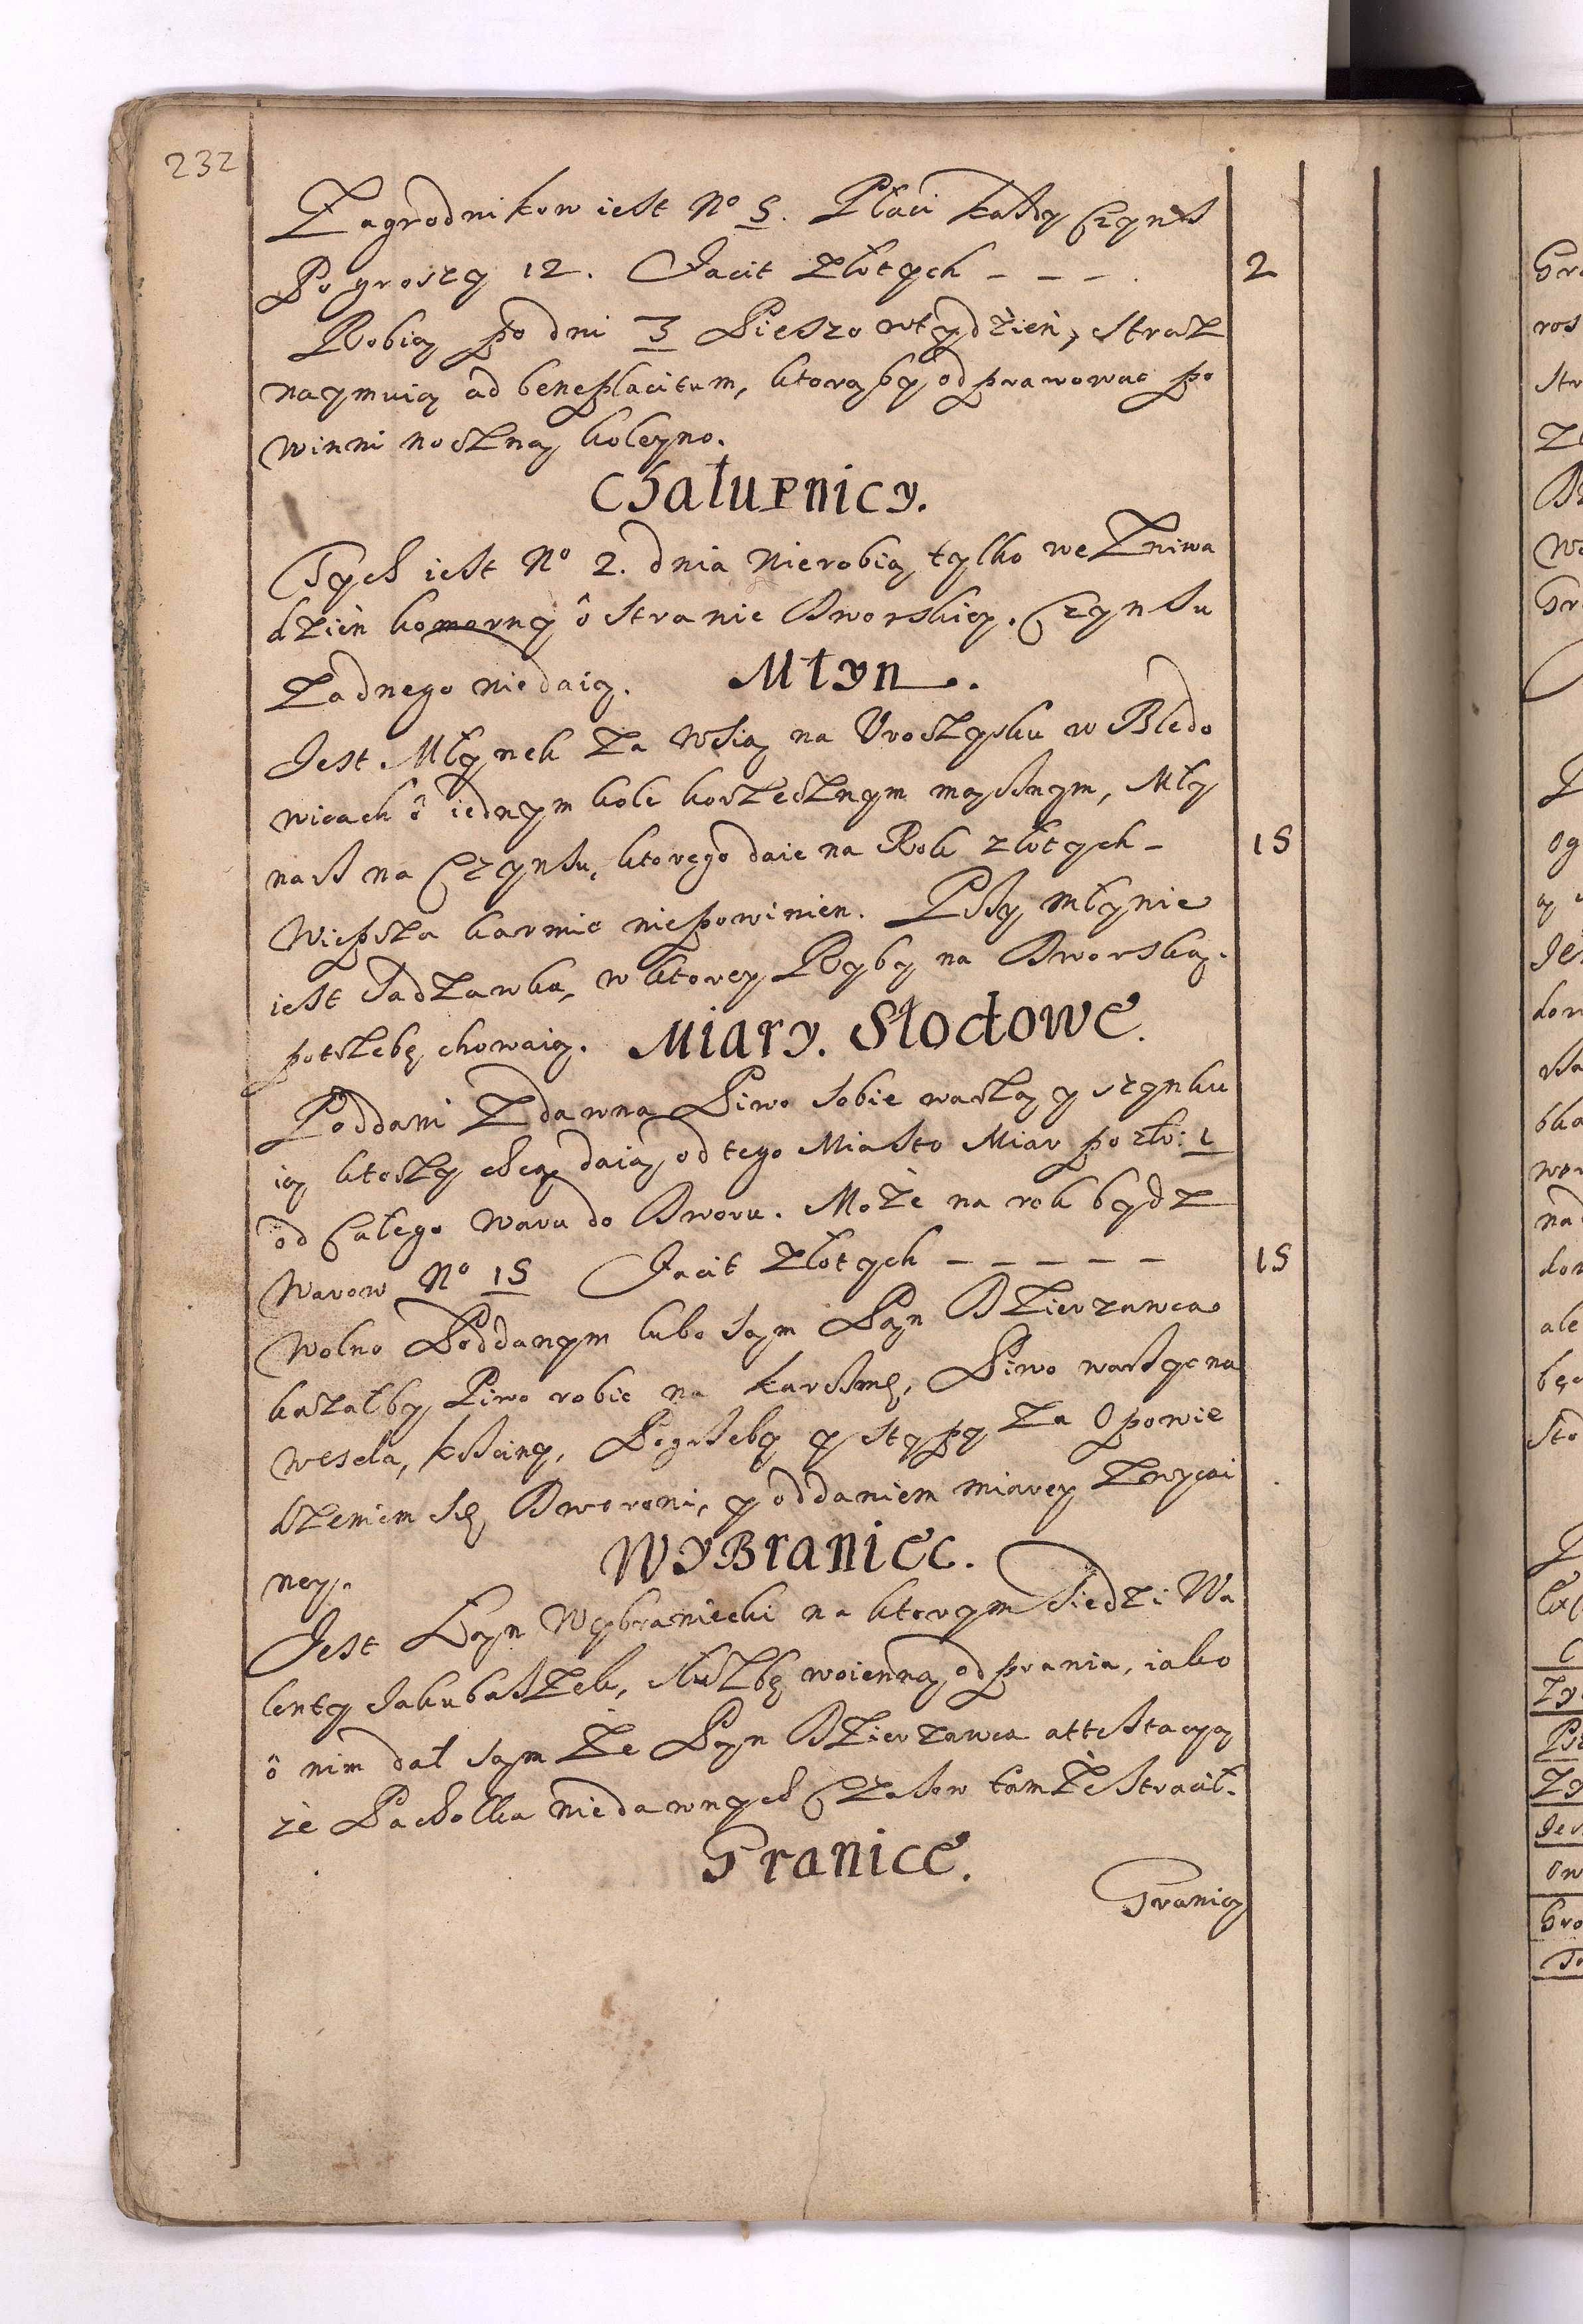 232
Zagrodnikow iest No 5. Płaci kaßdy Czynß
Po groszy 12. Facit złotych – – – . 2
Robią po dni 3 Pieszo wtydzień, straz
naymuią ad beneplacitum, ktorąby odprawowac po
winni nocżną koleyno.
Chałupnicy.
Tych iest No 2. dnia nierobią tylko we Zniwa
dzień komorny ô stranie Dworskiey. Czynßu
żadnego niedaią. Młyn.
Jest Młynek za Wsią na Vroczysku w Bledo
wicach ô iednym kole korzecznym mącżnym, Mły
narz na Czynßu, ktorego daie na Rok złotych – 15
Wieprza karmic niepowinien. Przy młynie
iest sadzawka, w ktorey Ryby na Dworską
potrzebę chowaią. Miary. Słodowe.
Poddani zdawna Piwo sobie warzą y szynku
ią ktorzy chcą daią od tego Miasto Miar po zło: 1
od Całego Waru do Dworu. Może na rok bydz
Warow No 15 Facit złotych – – – – – 15
Wolno Poddanym lubo sąm Pąn Dzierzawca
kazałby Piwo robic na karczmę, Piwo warzyc na
wesela, krzciny, Pogrzeby y stypy za Opowie
dzeniem się Dworowi, y oddaniem miarey zwyczai
ney. Wybraniec.
Jest Łąn Wybraniecki na ktorym siedzi Wa
lenty Jakubaszek, służbę woienną odprawia, iako
ô nim dał sąm że Pąn Dzierzawca attestacyą
że Pachołka niedawnych Czasow tamże stracił.
Granice.
Granicą